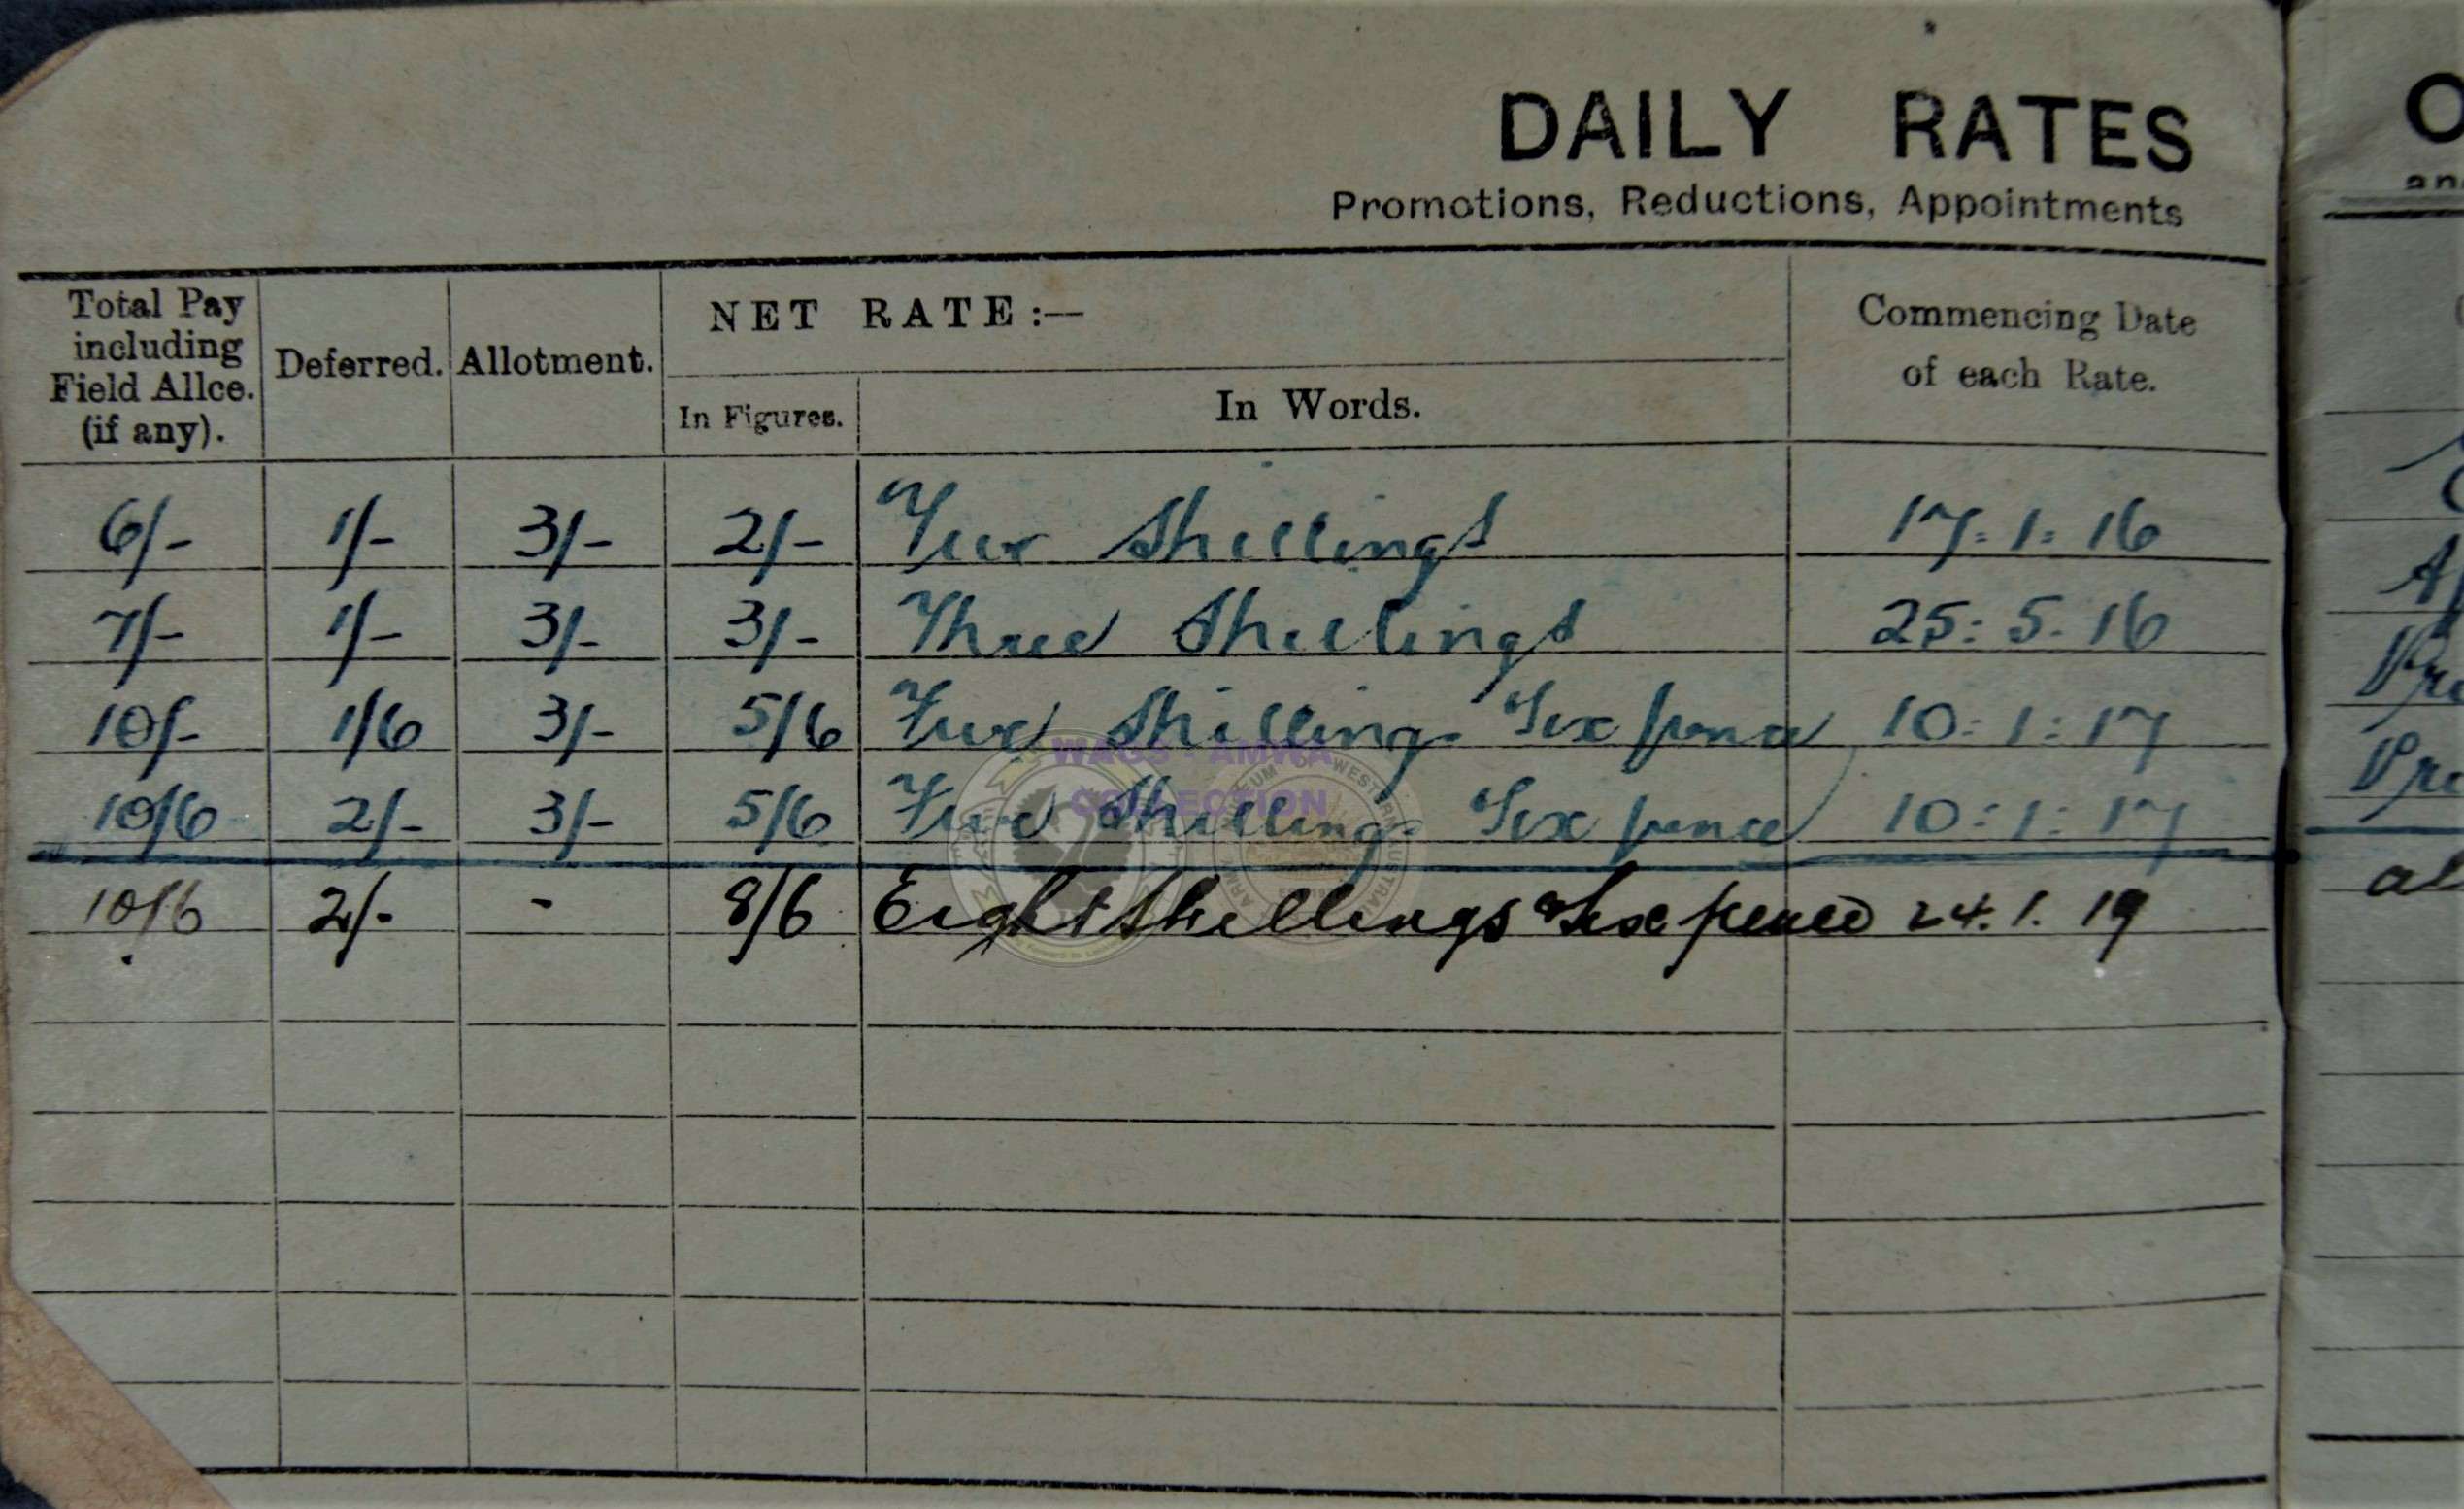 DAILY RATES
Promotions, Reductions, Appointments
Total Pay including Field Allce. (if any).
Deferred.
Allotment.
NET RATE :—
In Figures.
In Words.
Commencing Date of each Rate.
6/- 1/- 3/- 2/- Two Shillings 17: 1: 16
7/- 1/- 3/- 3/- Three Shillings 25: 5. 16
10/- 1/6 3/- 5/6 Five Shillings Six pence 10: 1: 17
10/6 2/- 3/- 5/6 Five Shillings Six pence 10: 1: 17
10/6 2/- - 8/6 Eight Shillings & Six pence 24. 1. 19
WAGS - AMWA
COLLECTION